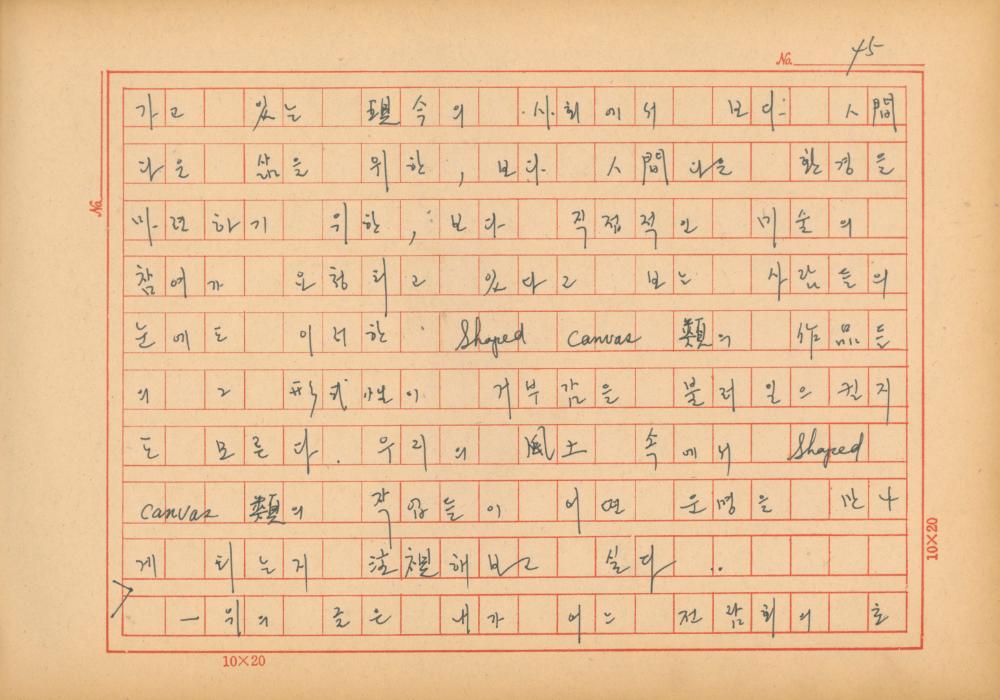 No. 45
가고 있는 現今의 사회에서 보다 人間
다운 삶을 위한, 보다 人間다운 환경을
마련하기 위한, 보다 직접적인 미술의
참여가 요청되고 있다고 보는 사람들의
눈에도 이러한 Shaped canvas 類의 作品들
의 그 形式性이 거부감을 불러 일으킬지
도 모른다. 우리의 風土 속에서 Shaped
canvas 類의 작업들이 어떤 운명을 만나
게 되는지 注視해보고 싶다..
— 위의 글은 내가 어느 전람회의 초
No.
10×20
10×20